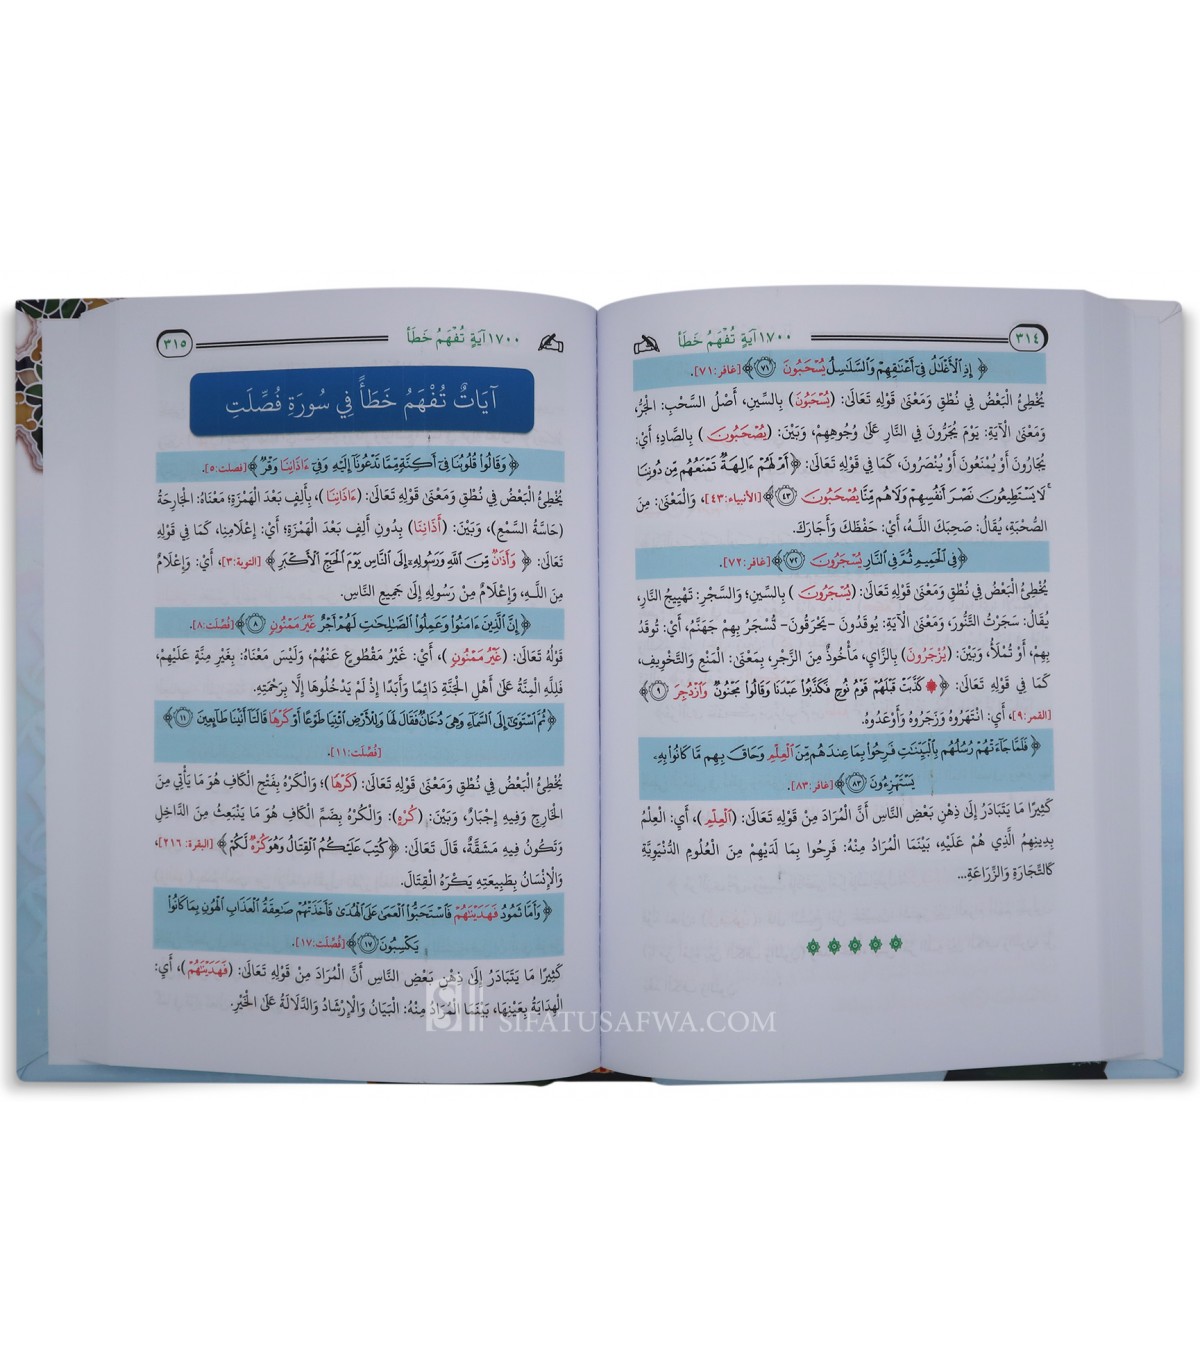 ٣١٤
١٧٠٠ آيَةٍ تُفْهَمُ خَطَأً
﴿ إِذِ ٱلْأَغْلَٰلُ فِىٓ أَعْنَٰقِهِمْ وَٱلسَّلَٰسِلُ يُسْحَبُونَ ٧١ ﴾ [غافر: ٧١].
يُخْطِئُ الْبَعْضُ فِي نُطْقِ وَمَعْنَى قَوْلِهِ تَعَالَى: (يُسْحَبُونَ) بِالسِّينِ، أَصْلُ السَّحْبِ: الْجَرُّ،
وَمَعْنَى الْآيَةِ: يَوْمَ يُجَرُّونَ فِي النَّارِ عَلَى وُجُوهِهِمْ، وَبَيْنَ: (يُصْحَبُونَ) بِالصَّادِ؛ أَيْ:
يُجَارُونَ أَوْ يُمْنَعُونَ أَوْ يُنْصَرُونَ، كَمَا فِي قَوْلِهِ تَعَالَى: ﴿ أَمْ لَهُمْ ءَالِهَةٌ تَمْنَعُهُم مِّن دُونِنَا
لَا يَسْتَطِيعُونَ نَصْرَ أَنفُسِهِمْ وَلَا هُم مِّنَّا يُصْحَبُونَ ٤٣ ﴾ [الأنبياء: ٤٣]، وَالْمَعْنَى: مِنَ
الصُّحْبَةِ، يُقَالُ: صَحِبَكَ اللَّـهُ، أَيْ: حَفِظَكَ وَأَجَارَكَ.
﴿ فِى ٱلْحَمِيمِ ثُمَّ فِى ٱلنَّارِ يُسْجَرُونَ ٧٢ ﴾ [غافر: ٧٢].
يُخْطِئُ الْبَعْضُ فِي نُطْقِ وَمَعْنَى قَوْلِهِ تَعَالَى: (يُسْجَرُونَ) بِالسِّينِ؛ وَالسَّجْرِ: تَهْيِيجُ النَّارِ،
يُقَالُ: سَجَرْتُ التَّنُّورَ، وَمَعْنَى الْآيَةِ: يُوقَدُونَ -يَحْرَقُونَ- تُسْجَرُ بِهِمْ جَهَنَّمُ، أَيْ: تُوقَدُ
بِهِمْ، أَوْ تُمْلَأُ، وَبَيْنَ: (يُزْجَرُونَ) بِالزَّايِ، مَأْخُوذٌ مِنَ الزَّجْرِ، بِمَعْنَى: الْمَنْعِ وَالتَّخْوِيفِ،
كَمَا فِي قَوْلِهِ تَعَالَى: ﴿ ۞ كَذَّبَتْ قَبْلَهُمْ قَوْمُ نُوحٍ فَكَذَّبُوا۟ عَبْدَنَا وَقَالُوا۟ مَجْنُونٌ وَٱزْدُجِرَ ٩ ﴾
[القمر: ٩]، أَيْ: انْتَهَرُوهُ وَزَجَرُوهُ وَأَوْعَدُوهُ.
﴿ فَلَمَّا جَآءَتْهُمْ رُسُلُهُم بِٱلْبَيِّنَٰتِ فَرِحُوا۟ بِمَا عِندَهُم مِّنَ ٱلْعِلْمِ وَحَاقَ بِهِم مَّا كَانُوا۟ بِهِۦ
يَسْتَهْزِءُونَ ٨٣ ﴾ [غافر: ٨٣].
كَثِيرًا مَا يَتَبَادَرُ إِلَى ذِهْنِ بَعْضِ النَّاسِ أَنَّ الْمُرَادَ مِنْ قَوْلِهِ تَعَالَى: (ٱلْعِلْمِ)، أَيِ: الْعِلْمُ
بِدِينِهِمُ الَّذِي هُمْ عَلَيْهِ، بَيْنَمَا الْمُرَادُ مِنْهُ: فَرِحُوا بِمَا لَدَيْهِمْ مِنَ الْعُلُومِ الدُّنْيَوِيَّةِ
كَالتِّجَارَةِ وَالزِّرَاعَةِ...
١٧٠٠ آيَةٍ تُفْهَمُ خَطَأً
٣١٥
آيَاتٌ تُفْهَمُ خَطَأً فِي سُورَةِ فُصِّلَتِ
﴿ وَقَالُوا۟ قُلُوبُنَا فِىٓ أَكِنَّةٍ مِّمَّا تَدْعُونَآ إِلَيْهِ وَفِىٓ ءَاذَانِنَا وَقْرٌ ﴾ [فصلت: ٥].
يُخْطِئُ الْبَعْضُ فِي نُطْقِ وَمَعْنَى قَوْلِهِ تَعَالَى: (ءَاذَانِنَا)، بِأَلِفٍ بَعْدَ الْهَمْزَةِ؛ مَعْنَاهُ: الْجَارِحَةُ
(حَاسَّةُ السَّمْعِ)، وَبَيْنَ: (أَذَانِنَا) بِدُونِ أَلِفٍ بَعْدَ الْهَمْزَةِ؛ أَيْ: إِعْلَامِنَا، كَمَا فِي قَوْلِهِ
تَعَالَى: ﴿ وَأَذَٰنٌ مِّنَ ٱللَّهِ وَرَسُولِهِۦٓ إِلَى ٱلنَّاسِ يَوْمَ ٱلْحَجِّ ٱلْأَكْبَرِ ﴾ [التوبة: ٣]، أَيْ: وَإِعْلَامٌ
مِنَ اللَّـهِ، وَإِعْلَامٌ مِنْ رَسُولِهِ إِلَى جَمِيعِ النَّاسِ.
﴿ إِنَّ ٱلَّذِينَ ءَامَنُوا۟ وَعَمِلُوا۟ ٱلصَّٰلِحَٰتِ لَهُمْ أَجْرٌ غَيْرُ مَمْنُونٍ ٨ ﴾ [فُصِّلَت: ٨].
قَوْلُهُ تَعَالَى: (غَيْرُ مَمْنُونٍ)، أَيْ: غَيْرُ مَقْطُوعٍ عَنْهُمْ، وَلَيْسَ مَعْنَاهُ: بِغَيْرِ مِنَّةٍ عَلَيْهِمْ،
فَلِلَّهِ الْمِنَّةُ عَلَى أَهْلِ الْجَنَّةِ دَائِمًا وَأَبَدًا إِذْ لَمْ يَدْخُلُوهَا إِلَّا بِرَحْمَتِهِ.
﴿ ثُمَّ ٱسْتَوَىٰٓ إِلَى ٱلسَّمَآءِ وَهِىَ دُخَانٌ فَقَالَ لَهَا وَلِلْأَرْضِ ٱئْتِيَا طَوْعًا أَوْ كَرْهًا قَالَتَآ أَتَيْنَا طَآئِعِينَ ١١ ﴾
[فُصِّلَت: ١١].
يُخْطِئُ الْبَعْضُ فِي نُطْقِ وَمَعْنَى قَوْلِهِ تَعَالَى: (كَرْهًا)؛ وَالْكَرْهُ بِفَتْحِ الْكَافِ هُوَ مَا يَأْتِي مِنَ
الْخَارِجِ وَفِيهِ إِجْبَارٌ، وَبَيْنَ: (كُرْهٍ): وَالْكُرْهُ بِضَمِّ الْكَافِ هُوَ مَا يَنْبَعِثُ مِنَ الدَّاخِلِ
وَتَكُونُ فِيهِ مَشَقَّةٌ، قَالَ تَعَالَى: ﴿ كُتِبَ عَلَيْكُمُ ٱلْقِتَالُ وَهُوَ كُرْهٌ لَّكُمْ ﴾ [البقرة: ٢١٦]،
وَالْإِنْسَانُ بِطَبِيعَتِهِ يَكْرَهُ الْقِتَالَ.
﴿ وَأَمَّا ثَمُودُ فَهَدَيْنَٰهُمْ فَٱسْتَحَبُّوا۟ ٱلْعَمَىٰ عَلَى ٱلْهُدَىٰ فَأَخَذَتْهُمْ صَٰعِقَةُ ٱلْعَذَابِ ٱلْهُونِ بِمَا كَانُوا۟
يَكْسِبُونَ ١٧ ﴾ [فُصِّلَت: ١٧].
كَثِيرًا مَا يَتَبَادَرُ إِلَى ذِهْنِ بَعْضِ النَّاسِ أَنَّ الْمُرَادَ مِنْ قَوْلِهِ تَعَالَى: (فَهَدَيْنَٰهُمْ)، أَيِ:
الْهِدَايَةُ بِعَيْنِهَا، بَيْنَمَا الْمُرَادُ مِنْهُ: الْبَيَانُ وَالْإِرْشَادُ وَالدَّلَالَةُ عَلَى الْخَيْرِ.
SIFATUSAFWA.COM